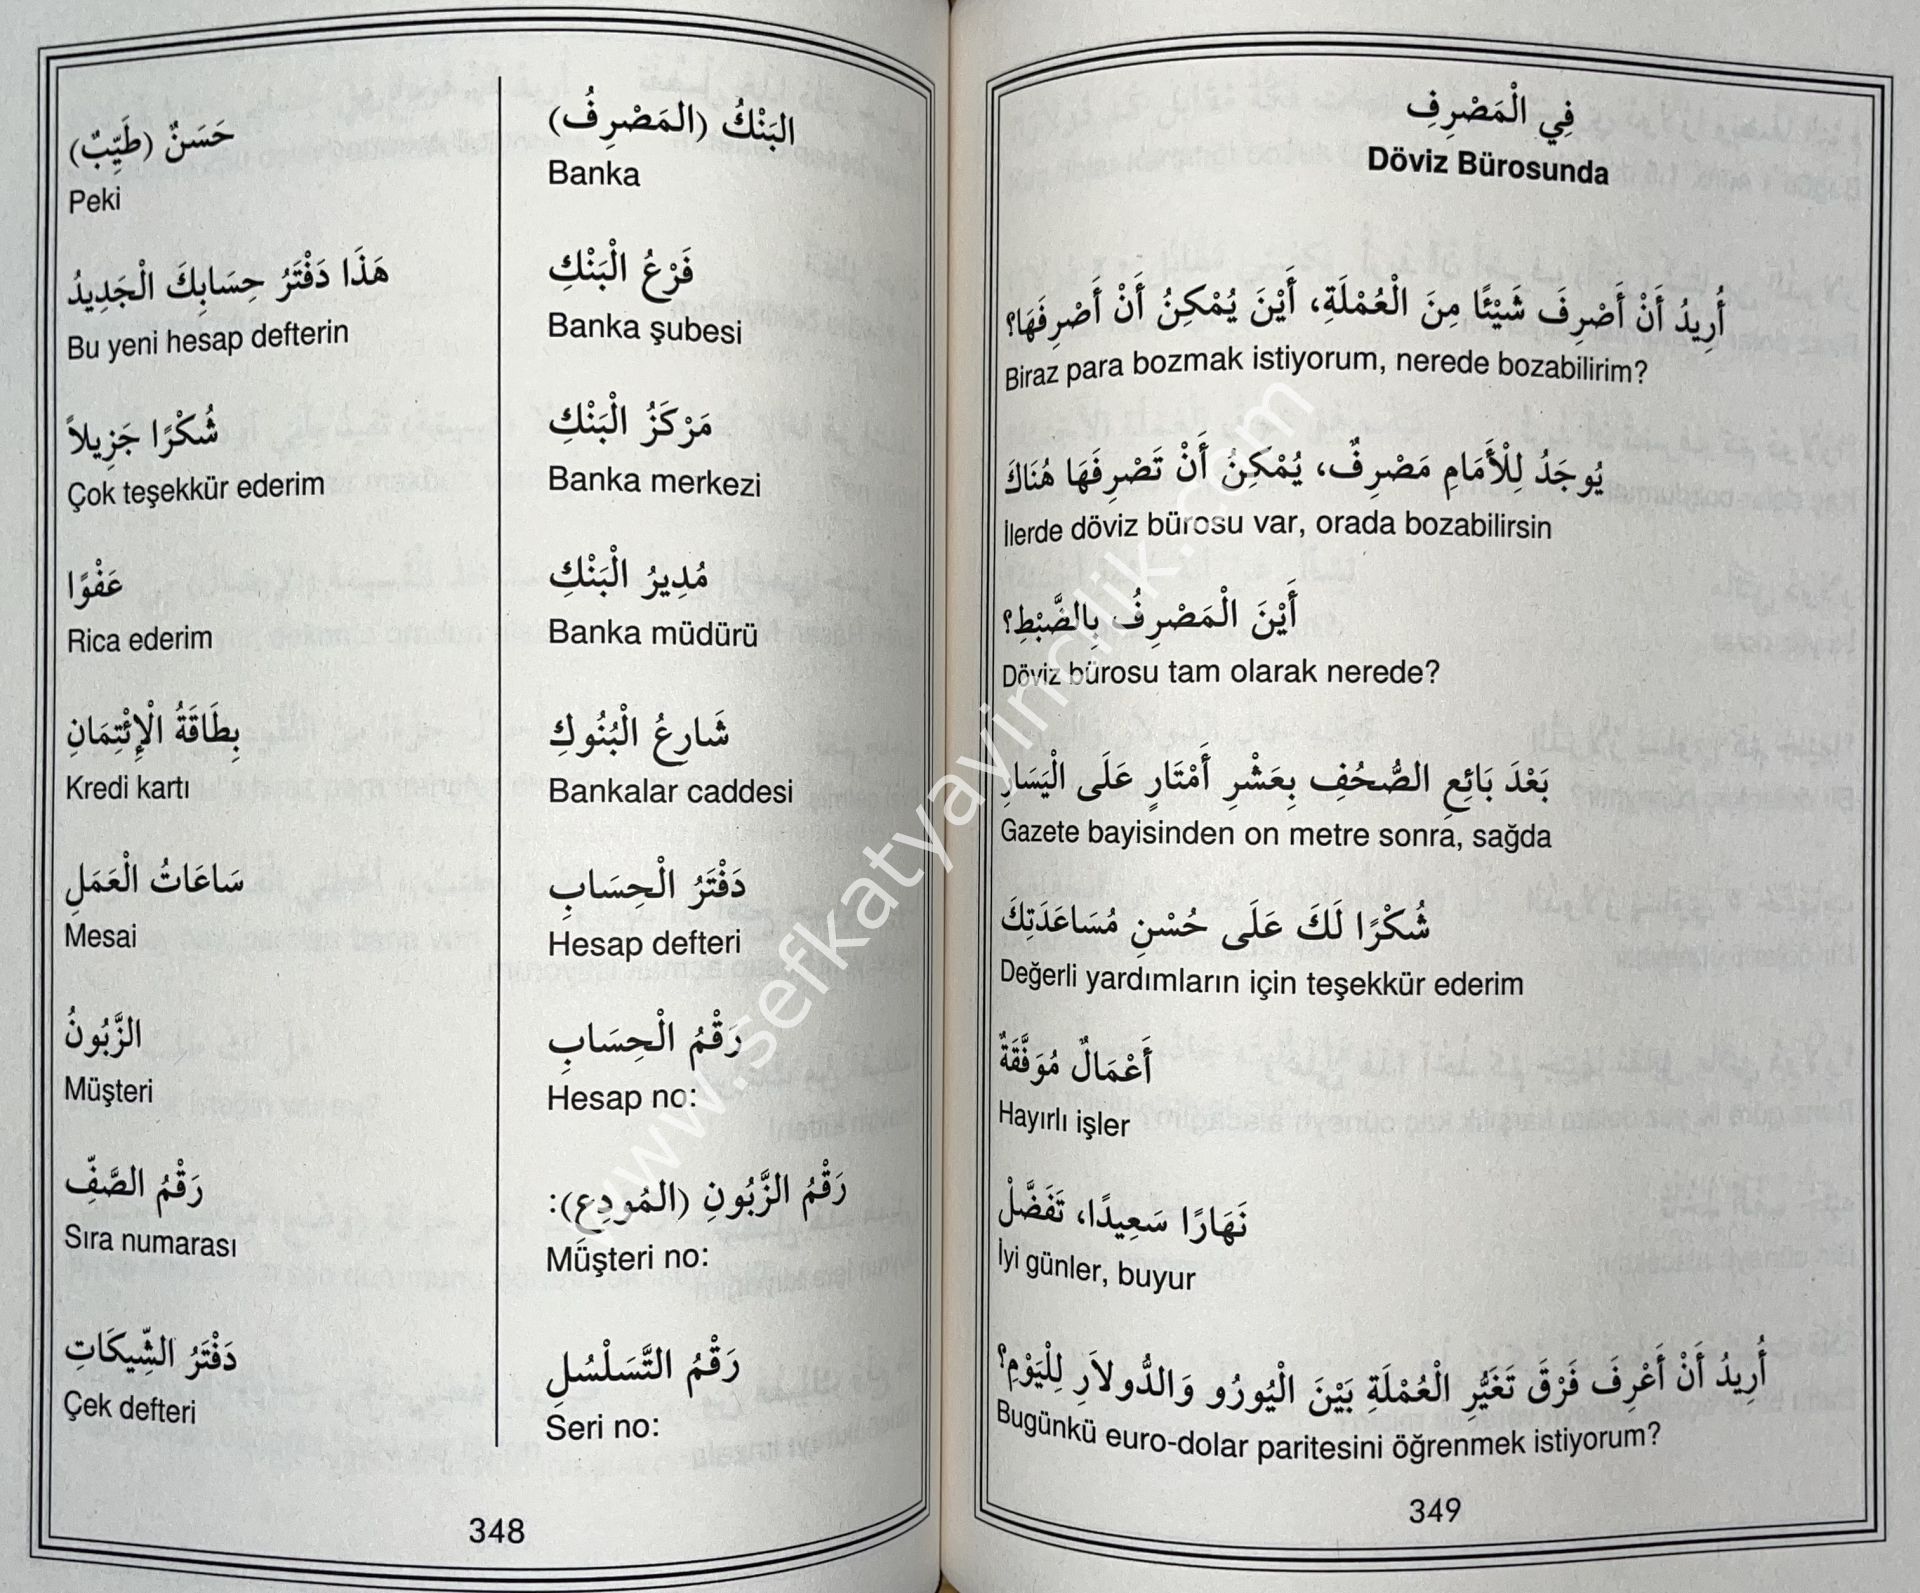 حَسَنٌ (طَيِّبٌ)
Peki
هَذَا دَفْتَرُ حِسَابِكَ الْجَدِيدُ
Bu yeni hesap defterin
شُكْرًا جَزِيلاً
Çok teşekkür ederim
عَفْوًا
Rica ederim
بِطَاقَةُ الْإِئْتِمَانِ
Kredi kartı
سَاعَاتُ الْعَمَلِ
Mesai
الزَّبُونُ
Müşteri
رَقْمُ الصَّفِّ
Sıra numarası
دَفْتَرُ الشِّيكَاتِ
Çek defteri
البَنْكُ (المَصْرِفُ)
Banka
فَرْعُ الْبَنْكِ
Banka şubesi
مَرْكَزُ الْبَنْكِ
Banka merkezi
مُدِيرُ الْبَنْكِ
Banka müdürü
شَارِعُ الْبُنُوكِ
Bankalar caddesi
دَفْتَرُ الْحِسَابِ
Hesap defteri
رَقْمُ الْحِسَابِ
Hesap no:
رَقْمُ الزَّبُونِ (المُودِعِ):
Müşteri no:
رَقْمُ التَّسَلْسُلِ
Seri no:
348
فِي الْمَصْرِفِ
Döviz Bürosunda
أُرِيدُ أَنْ أَصْرِفَ شَيْئًا مِنَ الْعُمْلَةِ، أَيْنَ يُمْكِنُ أَنْ أَصْرِفَهَا؟
Biraz para bozmak istiyorum, nerede bozabilirim?
يُوجَدُ لِلْأَمَامِ مَصْرِفٌ، يُمْكِنُ أَنْ تَصْرِفَهَا هُنَاكَ
İlerde döviz bürosu var, orada bozabilirsin
أَيْنَ الْمَصْرِفُ بِالضَّبْطِ؟
Döviz bürosu tam olarak nerede?
بَعْدَ بَائِعِ الصُّحُفِ بِعَشْرِ أَمْتَارٍ عَلَى الْيَسَارِ
Gazete bayisinden on metre sonra, sağda
شُكْرًا لَكَ عَلَى حُسْنِ مُسَاعَدَتِكَ
Değerli yardımların için teşekkür ederim
أَعْمَالٌ مُوَفَّقَةٌ
Hayırlı işler
نَهَارًا سَعِيدًا، تَفَضَّلْ
İyi günler, buyur
أُرِيدُ أَنْ أَعْرِفَ فَرْقَ تَغَيُّرِ الْعُمْلَةِ بَيْنَ الْيُورُو وَالدُّولاَرِ لِلْيَوْمِ؟
Bugünkü euro-dolar paritesini öğrenmek istiyorum?
349
www.sefkatyayincilik.com